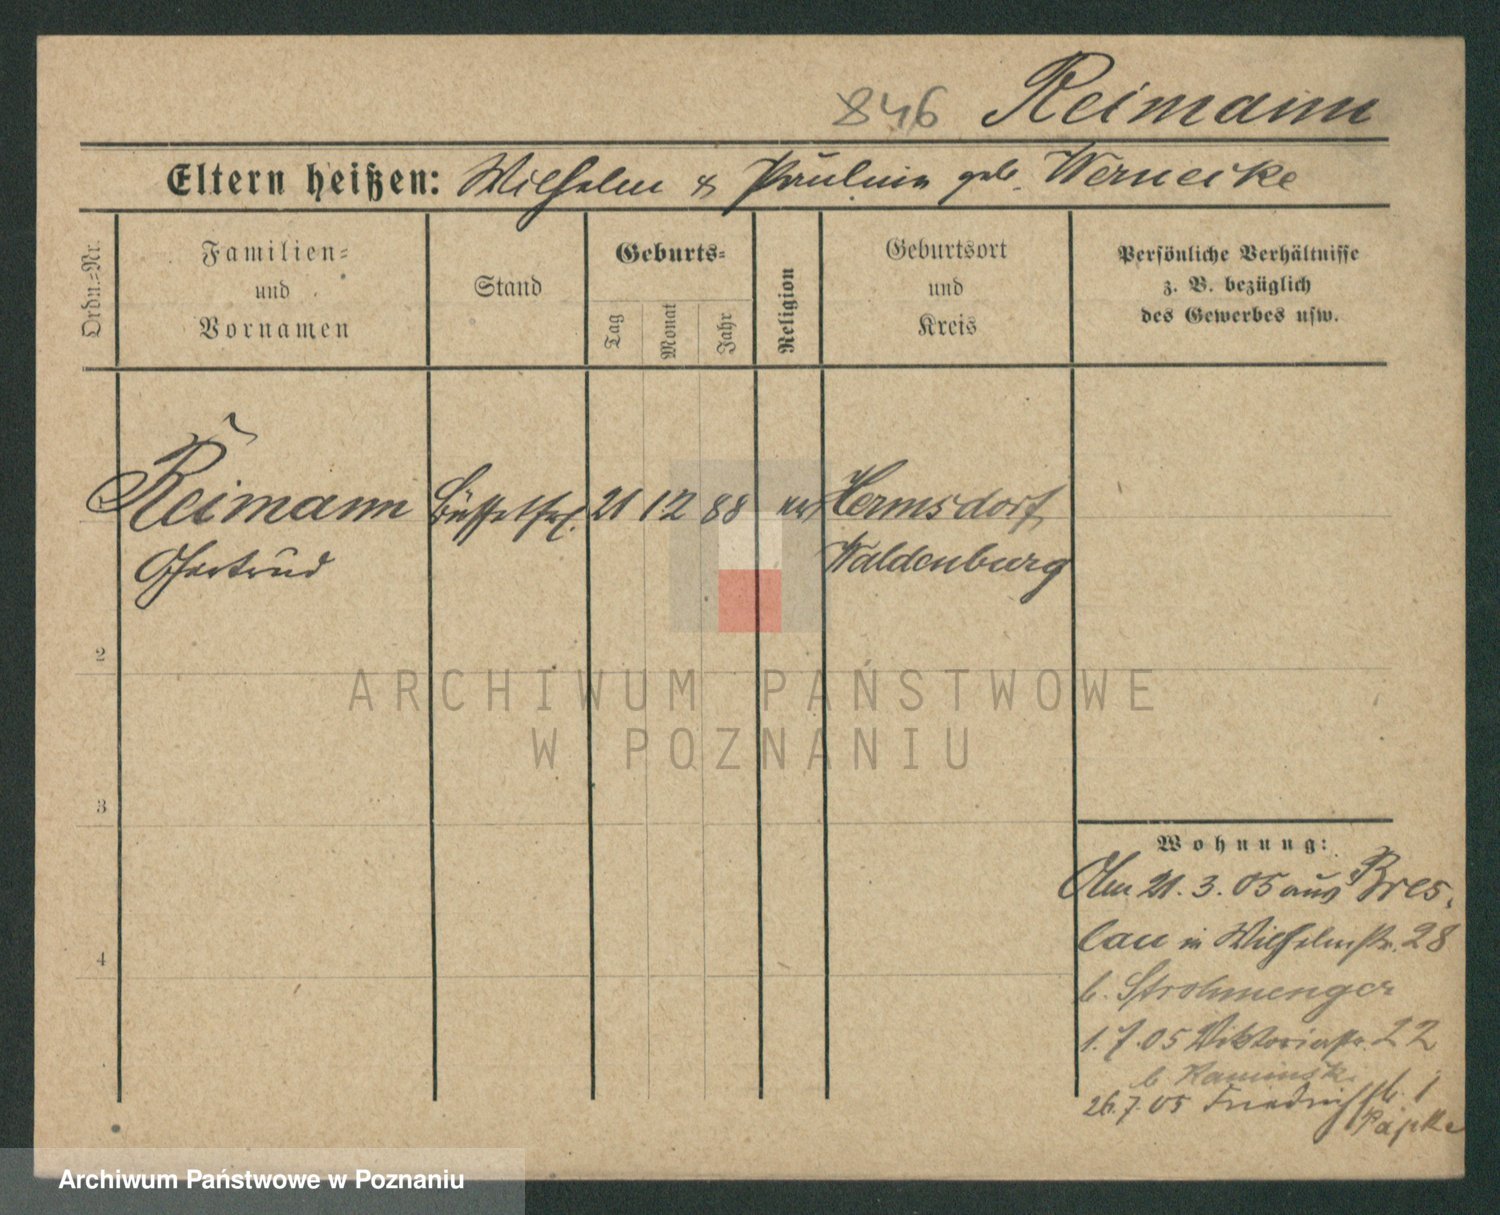 846 Reimann
Eltern heißen: Wilhelm & Pauline geb. Wernecke
Ordn.=Nr.
Familien=
und
Vornamen
Stand
Geburts=
Tag
Monat
Jahr
Religion
Geburtsort
und
Kreis
Persönliche Verhältnisse
z. B. bezüglich
des Gewerbes usw.
Reimann Büffetfrl. 21 12 88 Hermsdorf
Gertrud Waldenburg
2
3
4
ARCHIWUM PAŃSTWOWE
W POZNANIU
Wohnung:
Am 21. 3. 05 aus Bres-
lau in Wilhelmstr. 28
b. Strohmenger
1. 7. 05 Viktoriastr. 22
b. Kaminski
26. 7. 05 Friedrichstr. 1
Archiwum Państwowe w Poznaniu